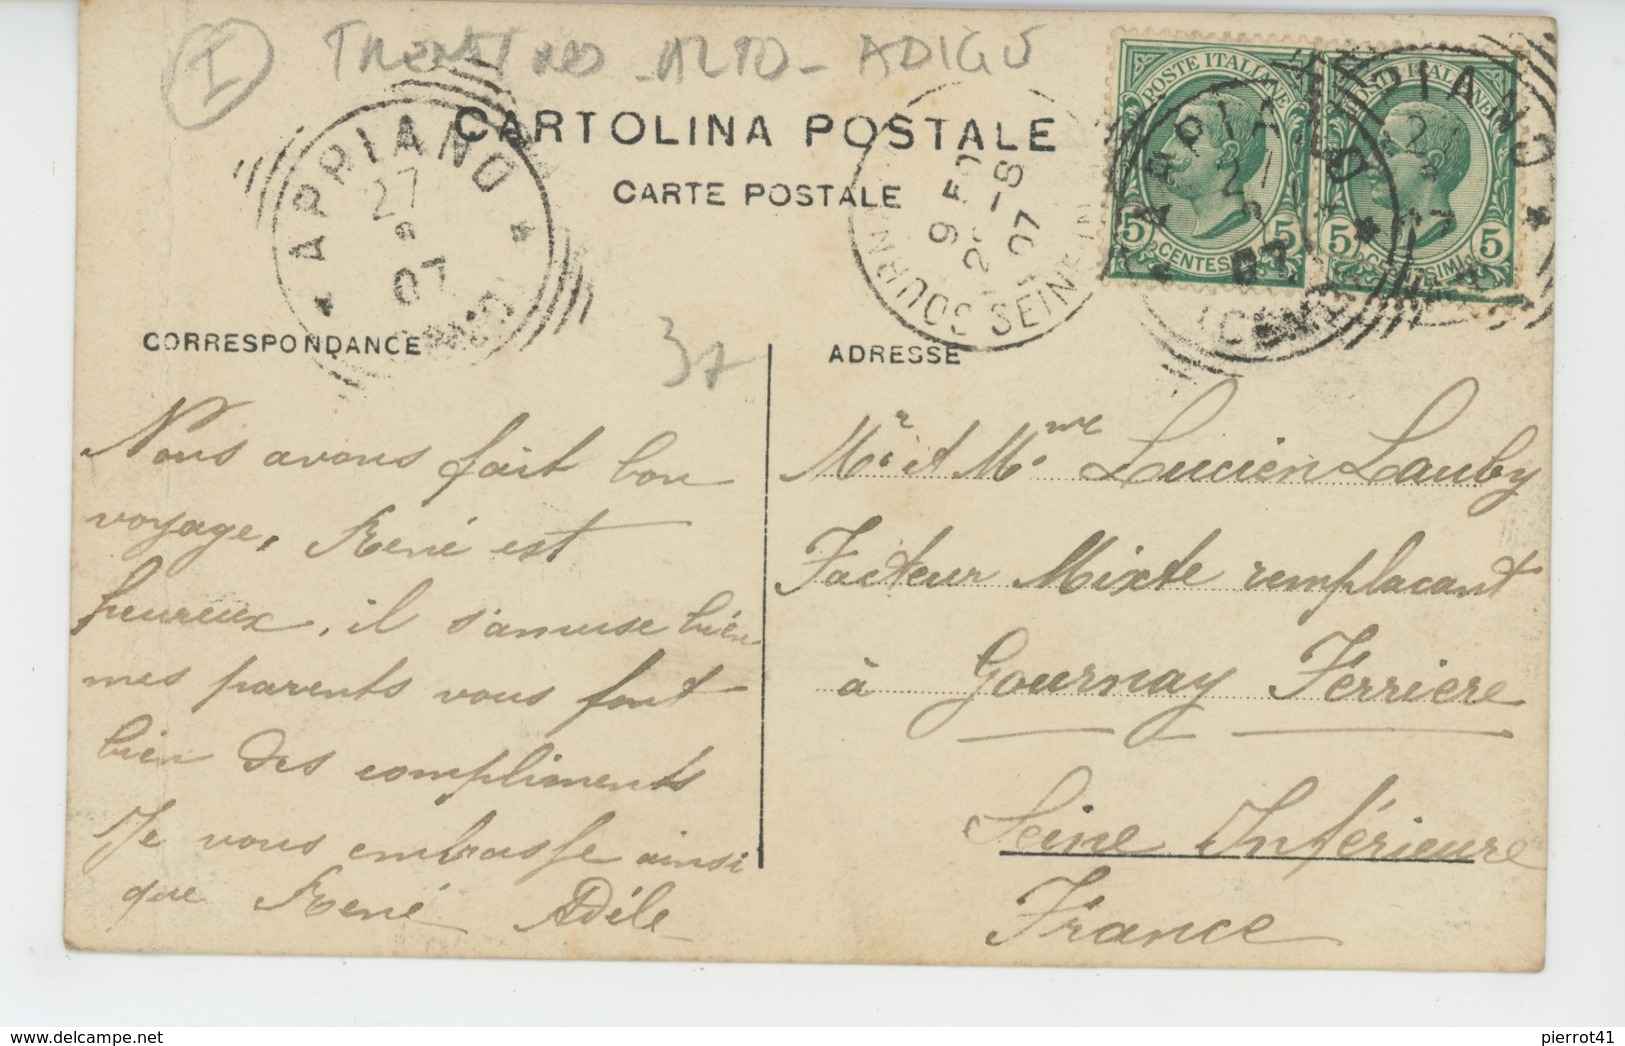 I TRENTINO - ALTO - ADIGE
CARTOLINA POSTALE
CARTE POSTALE
APPIANO
27
8
07
(COMO)
9
29-8
07
GOURNAY SEINE INF
POSTE ITALIANE
5 CENTESIMI 5
APPIANO
27
8
07
(COMO)
POSTE ITALIANE
5 CENTESIMI 5
CORRESPONDANCE
37
ADRESSE
Nous avons fait bon
voyage, René est
heureux, il s'amuse bien
mes parents vous font
bien des compliments
Je vous embrasse ainsi
que René Adèle
Mr et Mme Lucien Lauby
Facteur Mixte remplacant
à Gournay Ferriere
Seine Inférieure
France
pierrot41